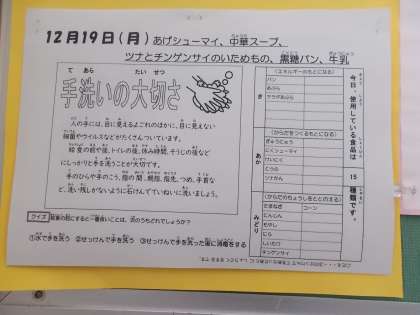 12月19日(月) あげシューマイ、中華スープ、
ツナとチンゲンサイのいためもの、黒糖パン、牛乳
手洗いの大切さ
て あら たい せつ
人の手には、目に見えるよごれのほかに、目に見えない
細菌やウイルスなどがたくさんついています。
給食の前や後、トイレの後、休み時間、そうじの後など
にしっかりと手を洗うことが大切です。
手のひらや手のこう、指の間、親指、指先、つめ、手首な
ど、洗い残しがないように石けんでていねいに洗いましょう。
クイズ
①水で手を洗う ②せっけんで手を洗う ③せっけんで手を洗った後に消毒をする
き
(エネルギーのもとになる)
パン
あぶら
サラダあぶら
あか
(からだをつくるもとになる)
ぎゅうにゅう
にくシューマイ
けいにく
とうふ
ツナかん
みどり
(からだのちょうしをととのえる)
たまねぎ コーン
にんじん
もやし
にら
しいたけ
チンゲンサイ
今日、使用している食品は 15 種類です。